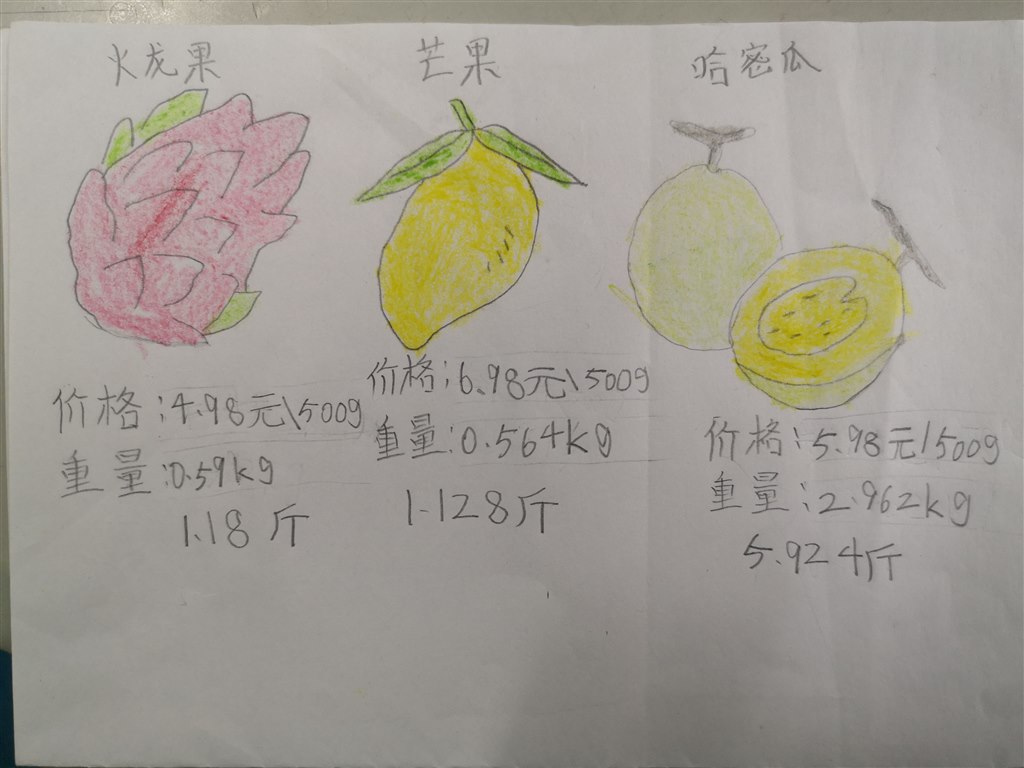 火龙果
价格:4.98元\500g
重量:0.59kg
1.18斤
芒果
价格:6.98元\500g
重量:0.564kg
1.128斤
哈密瓜
价格:5.98元/500g
重量:2.962kg
5.924斤